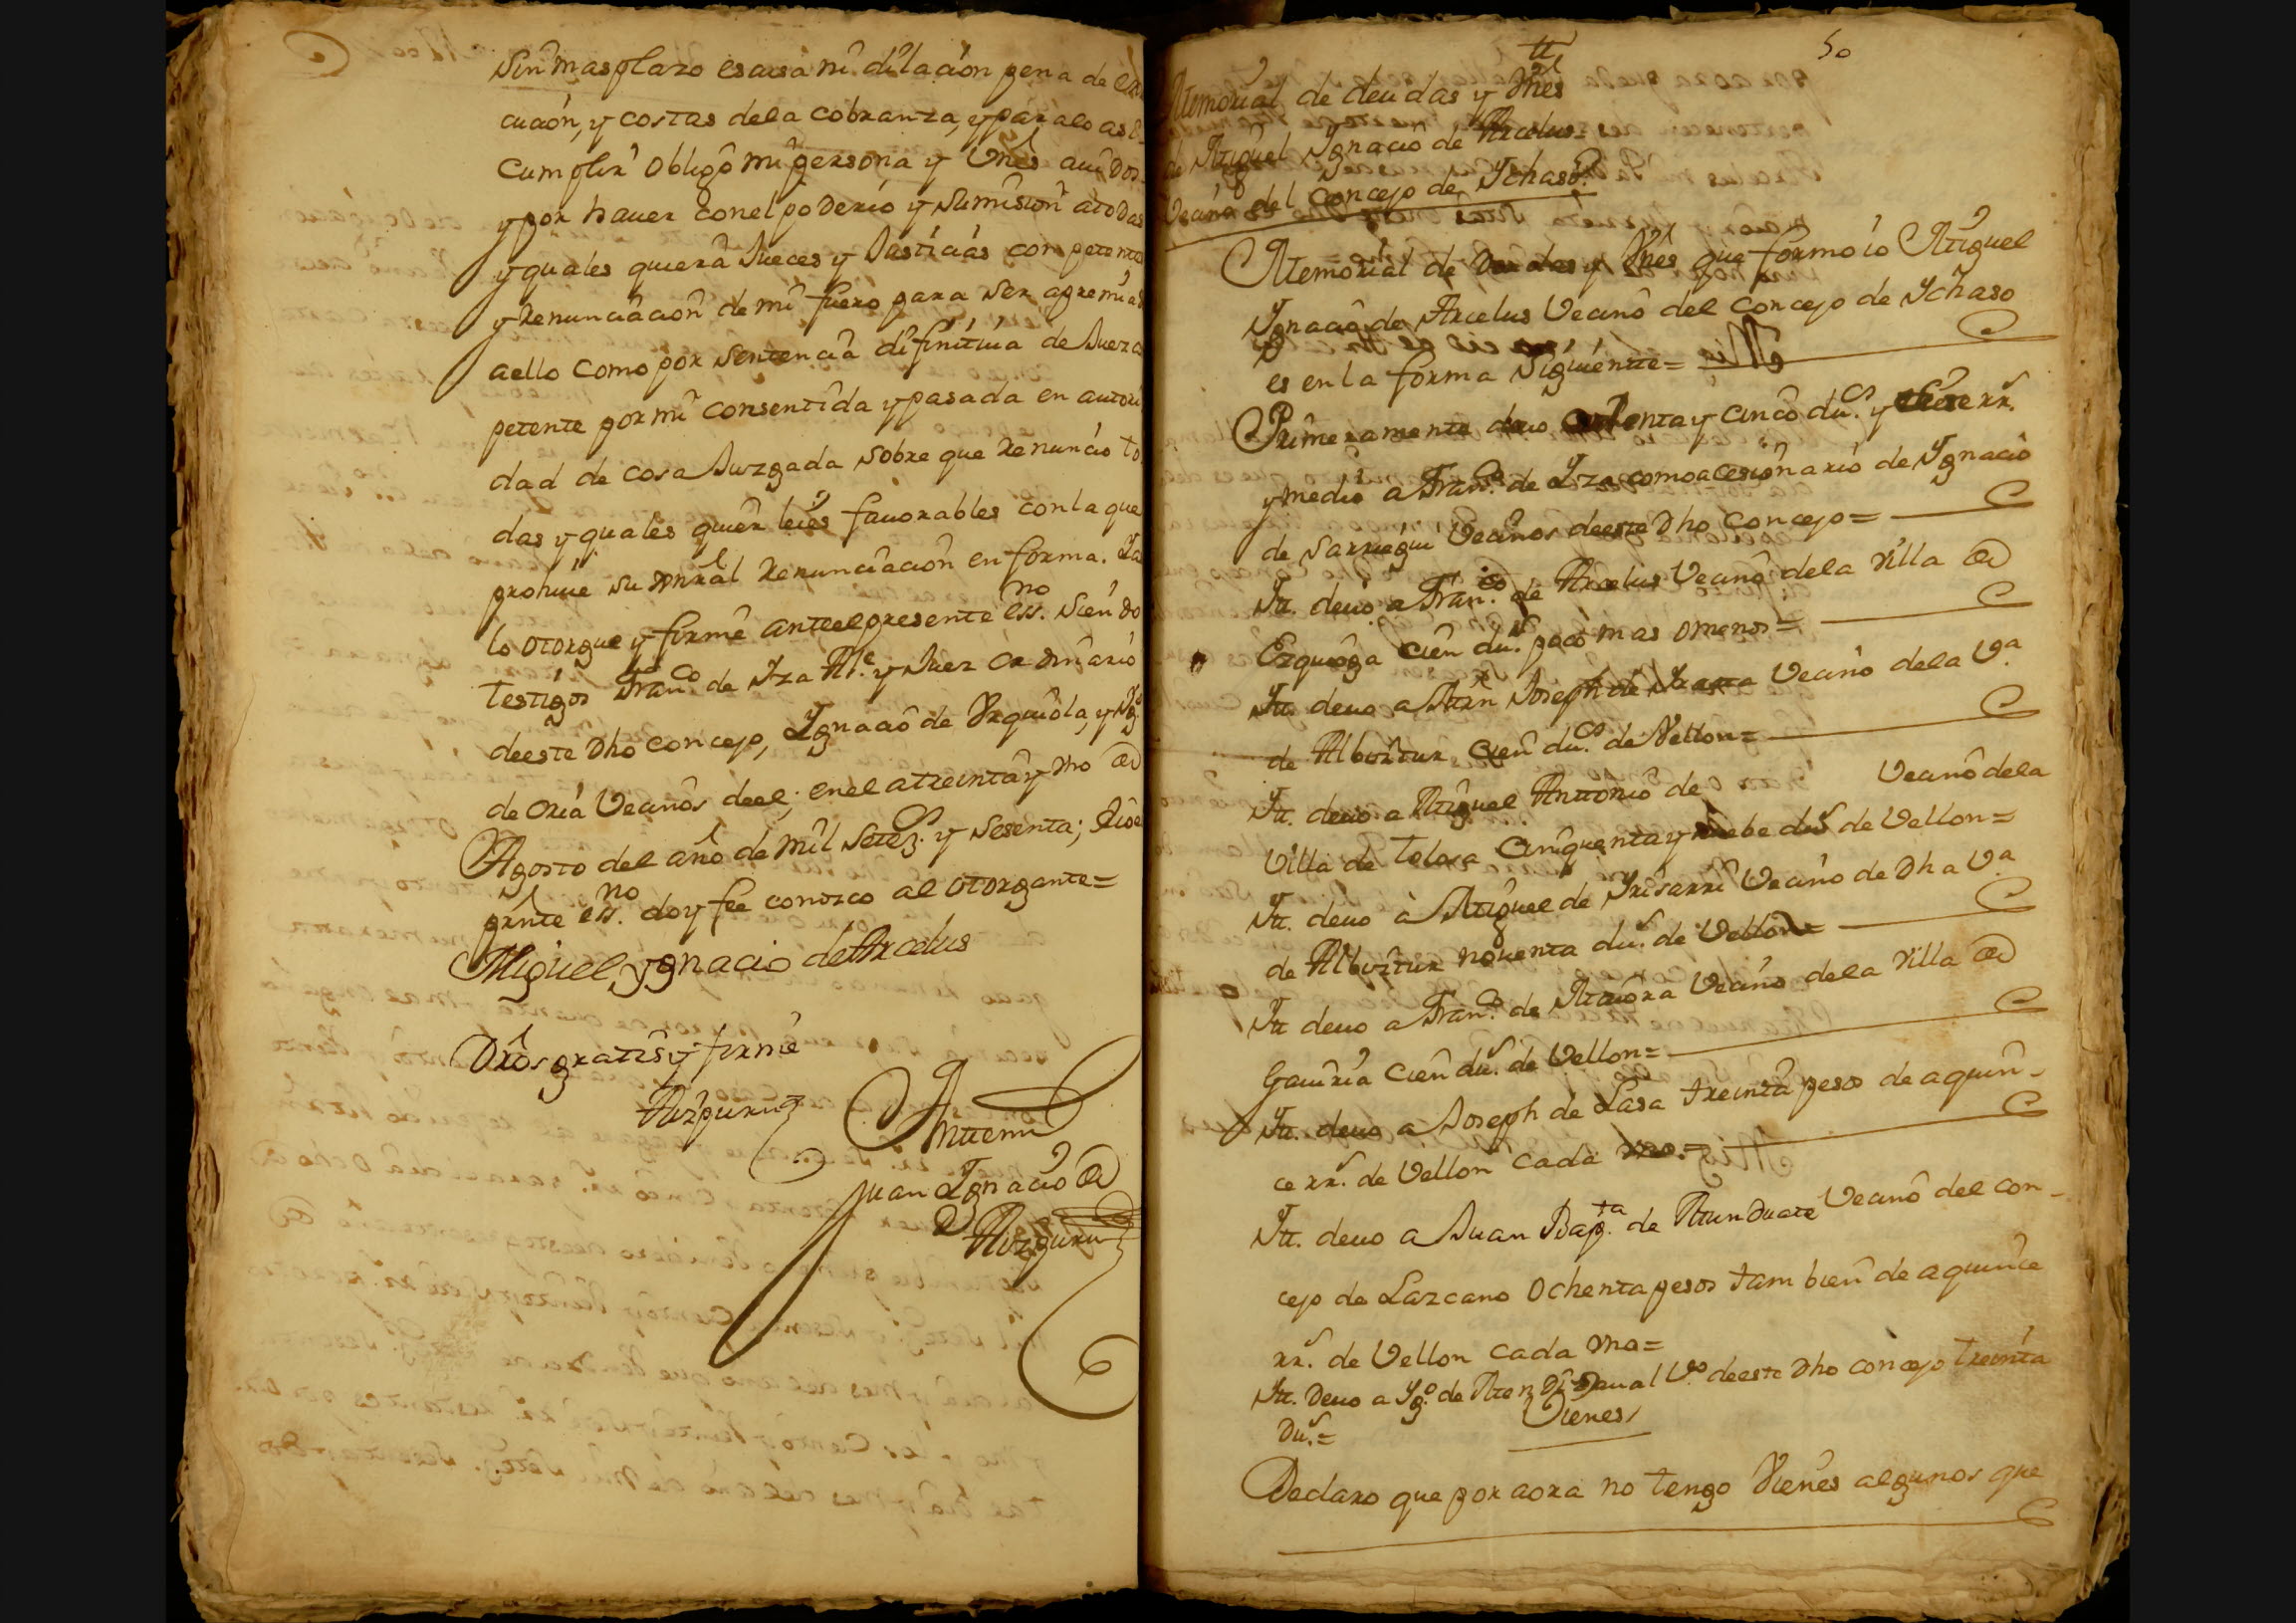 Sin mas plazo escusa ni dilacion pena de exe
cucion, y costas dela cobranza, y para lo asi
cumplir obligo mi persona y Vnes auidos
y por hauer con el poderio y sumision a todas
y quales quiera Jueces y Justicias competentes
y renunciacion de mi fuero para ser apremiado
aello como por sentencia difinitiua de Juez co
petente por mi consentida y pasada en autori
dad de cosa Juzgada sobre que renuncio to
das y quales quier leies fauorables con la que
prohiue su gnral renunciacion en forma. Ia
lo otorgue y firme ante el presente essno. siendo
testigos Franco. de Iza Alce. y Juez ordinario
deeste dho concejo, Ignacio de Vrquiola, y Igo.
de oria Vecinos deel; en el a treinta y vno de
Agosto del año de mil setezos. y sesenta; Eio el
prnte essno. doy fee conozco al otorgante=
Miguel Ygnacio de Arcelus
Dros gratis y firme
Aizpuru
Antemi
Juan Ignacio de
Aizpuru
50
Memorial de deudas y Vnes
de Miguel Ignacio de Arcelus=
Vecino del concejo de Ychaso
Memorial de Deudas y Vnes que formo io Miguel
Ignacio de Arcelus Vecino del concejo de Ychaso
es en la forma siguiente=
Primeramente deuo y cinco dus. y rrs.
y medio a Franco. de Iza como acesionario de Ignacio
de Sarriegui Vecinos deeste dho concejo=
Itt. deuo a Franco. de Arcelus Vecino dela villa de
Ezquioga cien dus. poco mas omenos=
Itt. deuo a Mrn Joseph de Vecino dela Va.
de Albiztur cien dus. de Vellon=
Itt. deuo a Miguel Antonio de Vecino dela
Villa de Tolosa cinquenta y nuebe dus de Vellon=
Itt. deuo à Miguel de Irisarri Vecino de dha Va.
de Albiztur nouenta dus. de Vellon=
Itt deuo a Franco. de Vecino dela villa de
Gauiria cien dus. de Vellon=
Itt. deuo a Joseph de Lasa treinta pesos de a quin-
ce rrs. de Vellon cada vno.=
Itt. deuo a Juan Bapta. de Munduate Vecino del con-
cejo de Lazcano ochenta pesos tam bien de a quince
rrs. de Vellon cada vno=
Itt. Deuo a Igo. de Mendizaual Vo. deeste dho concejo treinta
Dus.=
Vienes
Declaro que por aora no tengo Vienes algunos que